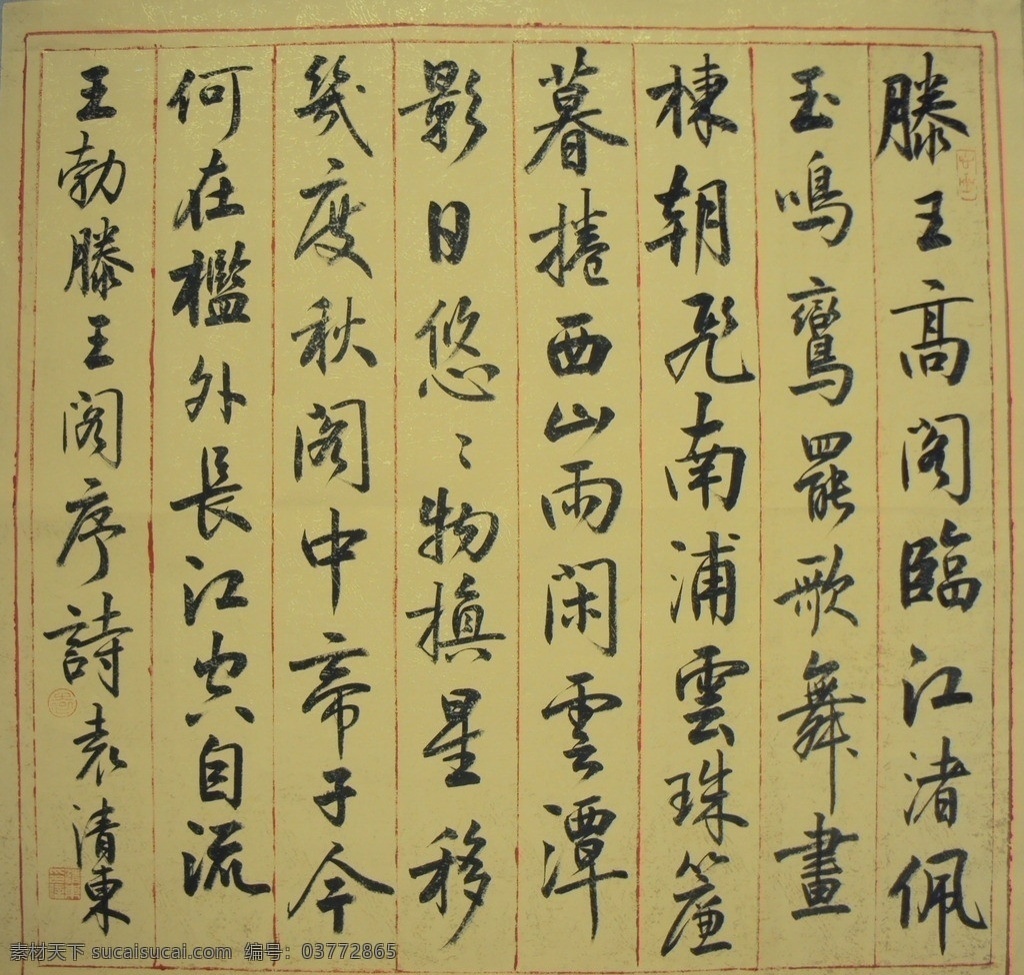 滕王高阁臨江渚佩
玉鳴鸞罷歌舞畫
棟朝飛南浦雲珠簾
暮捲西山雨闲雲潭
影日悠〻物換星移
幾度秋阁中帝子今
何在檻外長江空自流
王勃滕王阁序詩袁清東
素材天下 sucaisucai.com 编号：03772865